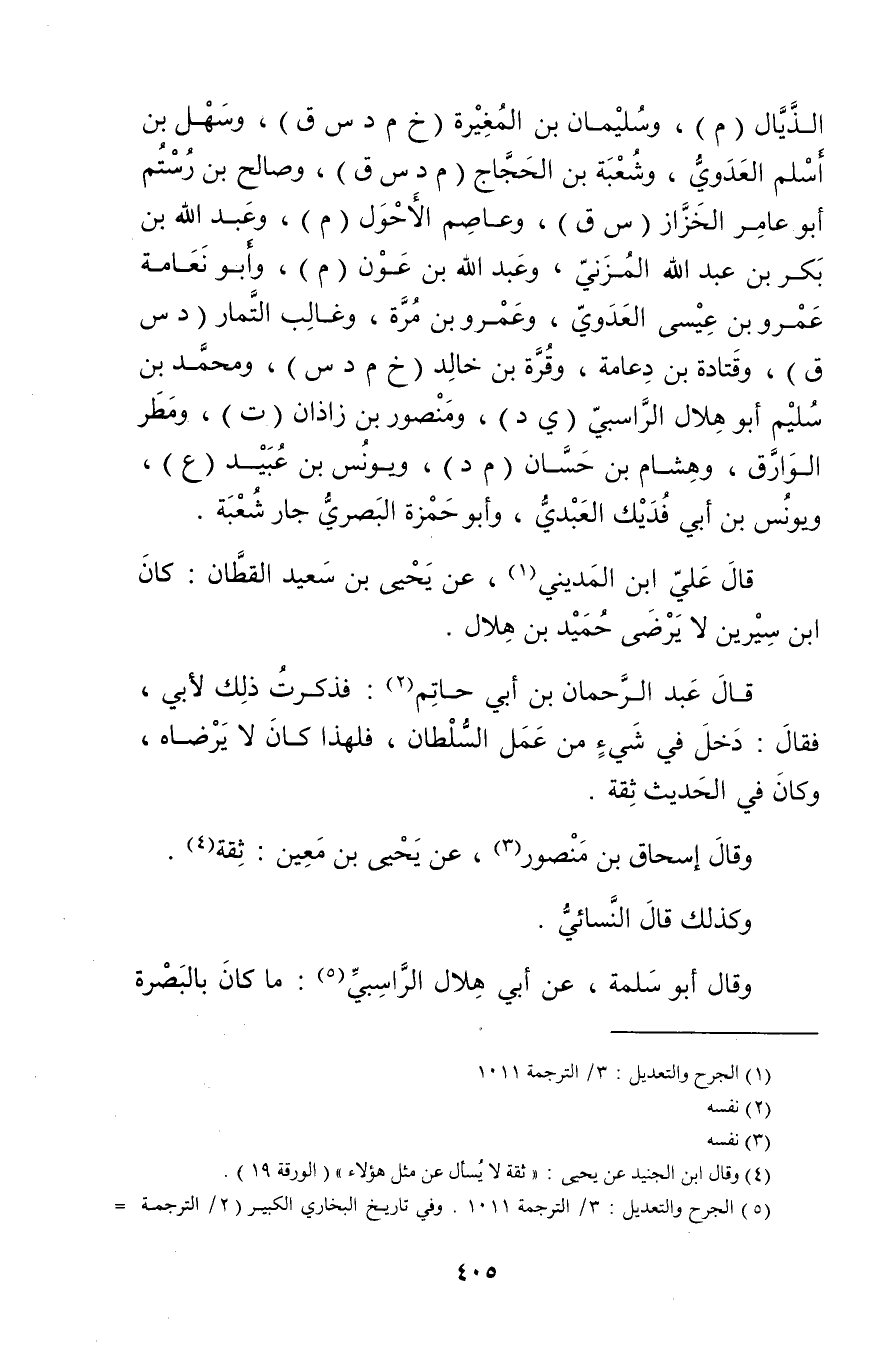 الـذَّيَّال ( م ) ، وسُليْمـان بن المُغِيْرة ( خ م د س ق ) ، وسَهْـل بن
أَسْلم العَدَويُّ ، وشُعْبَة بن الحَجَّاج ( م د س ق ) ، وصالح بن رُسْتُم
أبو عامِـر الخَزَّاز ( س ق ) ، وعـاصِم الأَحْوَل ( م ) ، وعَبـد الله بن
بَكـر بن عبد الله المُـزَنيّ ، وعَبد الله بن عَـوْن ( م ) ، وأَبـو نَعَـامـة
عَمْـرو بن عِيْسى العَدَويّ ، وعَمْـرو بن مُرَّة ، وغـالِب التَّمار ( د س
ق ) ، وقَتادة بن دِعامة ، وقُرَّة بن خالِد ( خ م د س ) ، ومحمَّـد بن
سُليْم أبو هِلال الرَّاسبيّ ( ي د ) ، ومَنْصور بن زاذان ( ت ) ، ومَطَر
الـوَارَّق ، وهِشـام بن حَسَّـان ( م د ) ، ويـونُس بن عُبَيْـد ( ع ) ،
ويونُس بن أبي فُدَيْك العَبْديُّ ، وأبو حَمْزة البَصريُّ جار شُعْبَة .
قالَ عَليّ ابن المَديني(١) ، عن يَحْيى بن سَعيد القطَّان : كانَ
ابن سِيْرين لا يَرْضَى حُمَيْد بن هِلال .
قـالَ عَبد الـرَّحمان بن أبي حـاتِم(٢) : فذكـرتُ ذلِك لأبي ،
فقالَ : دَخلَ في شَيءٍ من عَمَل السُّلْطان ، فلهذا كـانَ لا يَرْضـاه ،
وكانَ في الحَديث ثِقة .
وقالَ إسحاق بن مَنْصور(٣) ، عن يَحْيى بن مَعِين : ثِقة(٤) .
وكذلك قالَ النَّسائيُّ .
وقال أبو سَلمة ، عن أبي هِلال الرَّاسِبيِّ(٥) : ما كانَ بالبَصْرة
(١) الجرح والتعديل : ٣/ الترجمة ١٠١١
(٢) نفسه
(٣) نفسه
(٤) وقال ابن الجنيد عن يحيى : « ثقة لا يُسأل عن مثل هؤلاء » ( الورقة ١٩ ) .
(٥) الجرح والتعديل : ٣/ الترجمة ١٠١١ . وفي تاريخ البخاري الكبير ( ٢/ الترجمـة =
٤٠٥